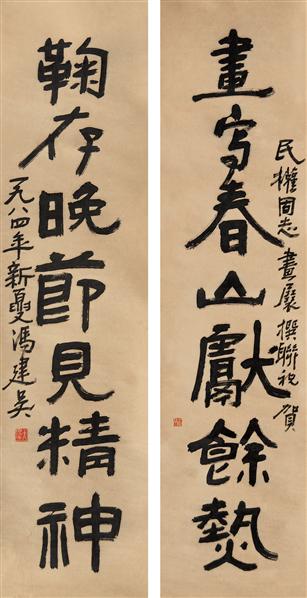 民權同志畫展撰聯祝賀
畫寫春山獻餘熱
鞠存晚節見精神
一九八四年新夏馮建吳